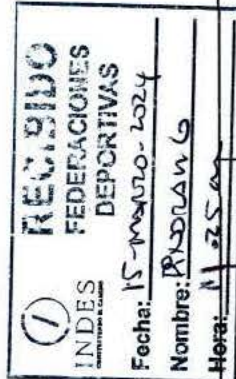 RECIBIDO
INDES
FEDERACIONES
DEPORTIVAS
Fecha: 15-marzo-2024
Nombre:
Hora: 11:25am